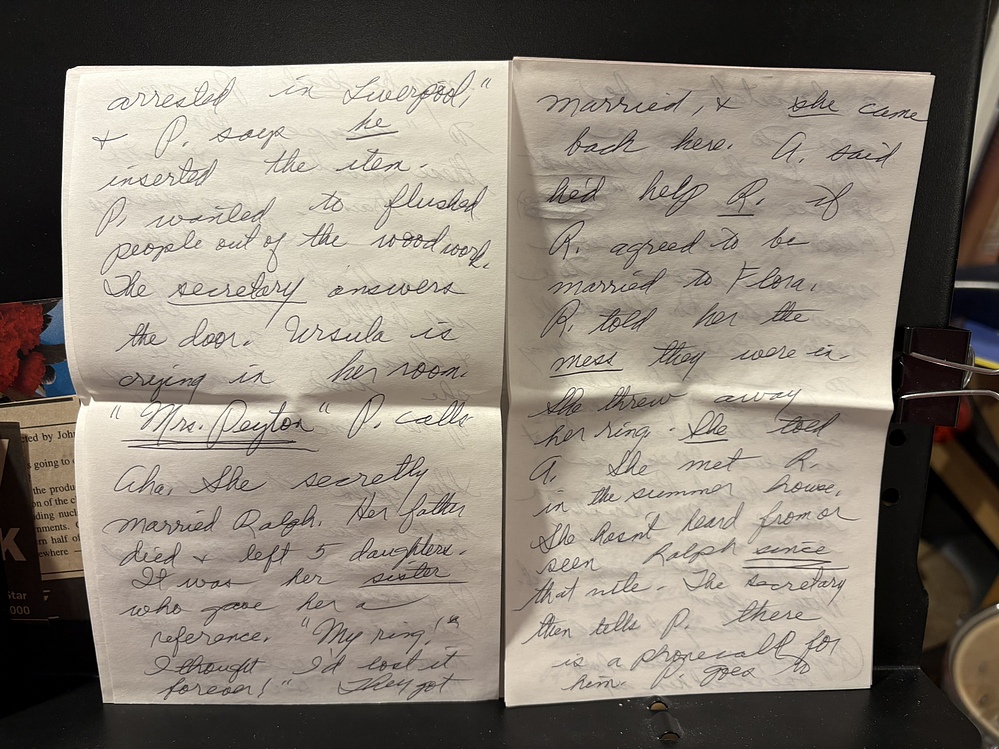 arrested in Liverpool,"
& P. says he
inserted the item.
P. wanted to flushed
people out of the woodwork.
The secretary answers
the door. Ursula is
crying in her room.
"Mrs. Peyton" P. calls
Aha. She secretly
married Ralph. Her father
died & left 5 daughters.
It was her sister
who gave her a
reference. "My ring!"
I thought I'd lost it
forever!" They got
married, & she came
back here. A. said
he'd help R. if
R. agreed to be
married to Flora.
R. told her the
mess they were in
She threw away
her ring. She told
A. She met R.
in the summer house.
She hasn't heard from or
seen Ralph since
that nite. The secretary
then tells P. there
is a phonecall for
him. P. goes to
ted by John
going to
the produ
on of the c
ding nucl
nments.
rn half of
ewhere
K
Star
000